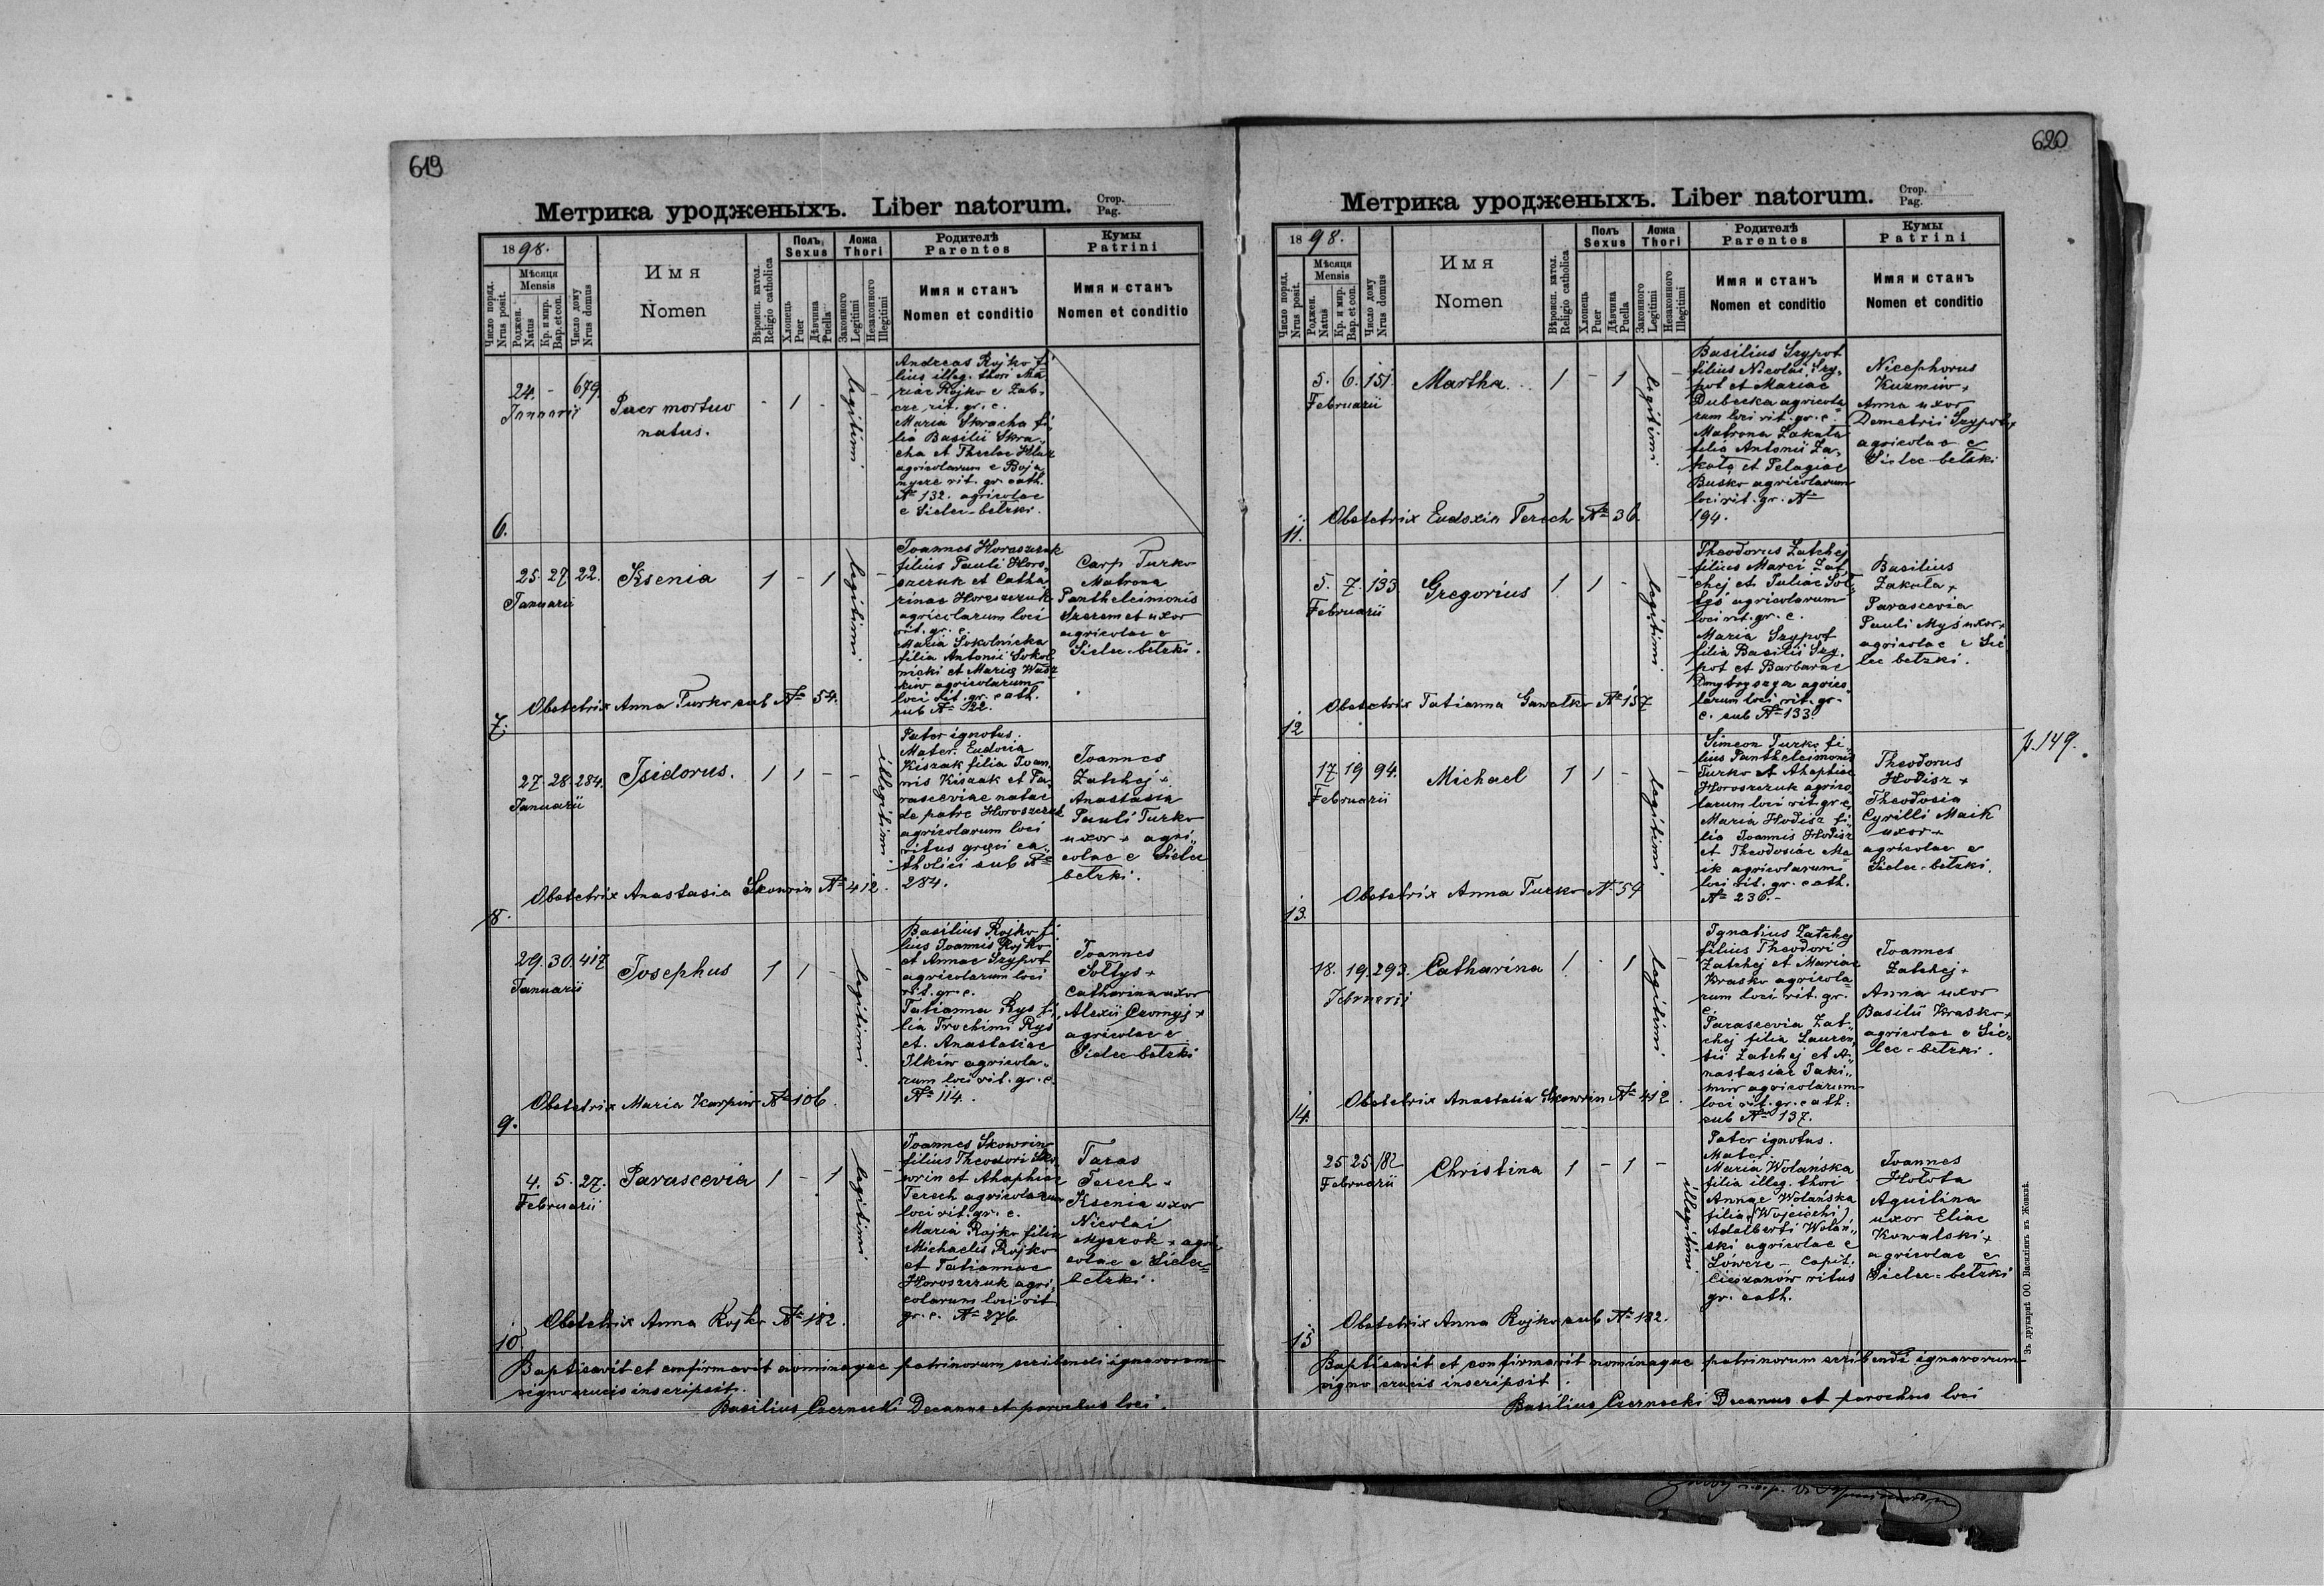 619
Метрика уродженыхъ. Liber natorum.
Стор.
Pag.
1898.
Число поряд.
Nrus posit.
Мѣсяця
Mensis
Рожден.
Natus
Кр. и мир.
Bap. et con.
Число дому
Nrus domus
Имя
Nomen
Вѣроисп. катол.
Religio catholica
Полъ
Sexus
Хлопець
Puer
Дѣвчина
Puella
Ложа
Thori
Законного
Legitimi
Незаконного
Illegitimi
Родителѣ
Parentes
Имя и станъ
Nomen et conditio
Кумы
Patrini
Имя и станъ
Nomen et conditio
6.
24. - 679
Januarii
Puer mortuo
natus.
- 1 -
legitimi
Andreas Rojko fi
lius illeg. thori Ma
riae Rojko e Zab-
cze rit. gr. c.
Maria Skracha fi
lia Basilii Skra-
cha et Theclae
agricolarum e Boja
nycze rit. gr. cath.
№ 132. agricolae
e Sielec-bełzki.
7.
25. 27. 22.
Januarii
Ksenia
1 - 1
legitimi
Joannes Horoszczuk
filius Pauli Horo-
szczuk et Catha
rinae Horoszczuk
agricolarum loci
rit. gr. c.
Maria Sokolnicka
filia Antonii Sokol
nicki et Mariae Wasz
kiw agricolarum
loci rit. gr. cath.
sub № 122.
Carp Turko
Matrona
Pantheleimonis
Szerem et uxor
agricolae e
Sielec-bełzki.
Obstetrix Anna Turko sub № 54.
8.
27. 28. 284.
Januarii
Isidorus.
1 1 - -
illegitimi.
Pater ignotus.
Mater. Eudocia
Kiszak filia Joan
nis Kiszak et Pa
rasceviae natae
de patre Horoszczuk
agricolarum loci
ritus graeci ca-
tholici sub №
284.
Joannes
Zatchej +
Anastasia
Pauli Turko
uxor + agri
colae e Sielec
bełzki.
Obstetrix Anastasia Skowrin № 412.
9.
29. 30. 417
Januarii
Josephus
1 1 -
legitimi
Basilius Rojko fi
lius Joannis Rojko
et Annae Szypot
agricolarum loci
rit. gr. c.
Tatianna Rys fi
lia Trochimi Rys
et. Anastasiae
Ilkiw agricola-
rum loci rit. gr. c.
№ 114.
Joannes
Sołtys +
Catharina uxor
Alexii Czornyj +
agricolae e
Sielec-bełzki
Obstetrix Maria Karpiw № 106.
10.
4. 5. 27.
Februarii
Parascevia
1 - 1
legitimi
Joannes Skowrin
filius Theodori Sko
wrin et Ahaphiae
Terech agricolarum
loci rit. gr. c.
Maria Rojko filia
Michaelis Rojko
et Tatiannae
Horoszczuk agri
colarum loci rit
gr. c. № 276.
Taras
Terech +
Ksenia uxor
Nicolai
Myszok + agri
colae e Sielec
bełzki.
Obstetrix Anna Rojko № 182.
Baptisavit et confirmavit nominaque patrinorum scribendi ignarorum
signo crucis inscripsit.
Basilius Czernecki Decanus et parochus loci.
620
Метрика уродженыхъ. Liber natorum.
Стор.
Pag.
1898.
Число поряд.
Nrus posit.
Мѣсяця
Mensis
Рожден.
Natus
Кр. и мир.
Bap. et con.
Число дому
Nrus domus
Имя
Nomen
Вѣроисп. катол.
Religio catholica
Полъ
Sexus
Хлопець
Puer
Дѣвчина
Puella
Ложа
Thori
Законного
Legitimi
Незаконного
Illegitimi
Родителѣ
Parentes
Имя и станъ
Nomen et conditio
Кумы
Patrini
Имя и станъ
Nomen et conditio
11.
5. 6. 151.
Februarii
Martha.
1 - 1
legitimi
Basilius Szypot
filius Nicolai Szy-
pot et Mariae
Dubecka agricola
rum loci rit. gr. c.
Matrona Zakała
filia Antonii Za-
kała et Pelagiae
Busko agricolarum
loci rit. gr. №
194.
Nicephorus
Kuzmiw +
Anna uxor
Demetrii Szypot +
agricolae e
Sielec bełzki
Obstetrix Eudoxia Terech № 36
12
5. 7. 133
Februarii
Gregorius
1 1 -
legitimi
Theodorus Zatchej
filius Marci Zat
chej et Juliae Soł-
tys agricolarum
loci rit. gr. c.
Maria Szypot
filia Basilii Szy-
pot et Barbarae
Dmytryszyn agrico
larum loci rit. gr.
c. sub № 133.
Basilius
Zakała +
Parascevia
Pauli Myś uxor +
agricolae e Sie
lec bełzki.
Obstetrix Tatianna Gawałko № 157
13.
17 19 94.
Februarii
Michael
1 1 -
legitimi
Simeon Turko fi-
lius Pantheleimonis
Turko et Ahaphiae
Horoszczuk agrico
larum loci rit. gr. c.
Maria Hodisz fi
lia Joannis Hodisz
et Theodosiae Ma
ik agricolarum
loci rit. gr. cath.
№ 236. -
Theodorus
Hodisz +
Theodosia
Cyrilli Maik
uxor +
agricolae e
Sielec-bełzki.
p. 149.
Obstetrix Anna Turko № 54
14.
18. 19. 293.
Februarii
Catharina
1 - 1
legitimi
Ignatius Zatchej
filius Theodori
Zatchej et Mariae
Krasko agricola
rum loci rit. gr.
c.
Parascevia Zat-
chej filia Lauren
tii Zatchej et A-
nastasiae Jaki-
miw agricolarum
loci rit. gr. cath.
sub № 137.
Joannes
Zatchej +
Anna uxor
Basilii Krasko +
agricolae e Sie-
lec-bełzki.
Obstetrix Anastasia Skowrin № 412.
15
25 25 182
Februarii
Christina
1 - 1 -
illegitimi
Pater ignotus.
Mater.
Maria Wolańska
filia illeg. thori
Annae Wolańska
filia (Wojciechi)
Adalberti Wolań-
ski agricolae e
Łówcze - Capit.
Cieszanów ritus
gr. cath.
Joannes
Hołota
Aquilina
uxor Eliae
Kowalski +
agricolae e
Sielec-bełzki
Obstetrix Anna Rojko sub № 182.
Baptisavit et confirmavit nominaque patrinorum scribendi ignarorum
signo crucis inscripsit.
Basilius Czernecki Decanus et parochus loci
Зъ друкарнѣ ОО. Василіянъ въ Жовквѣ.